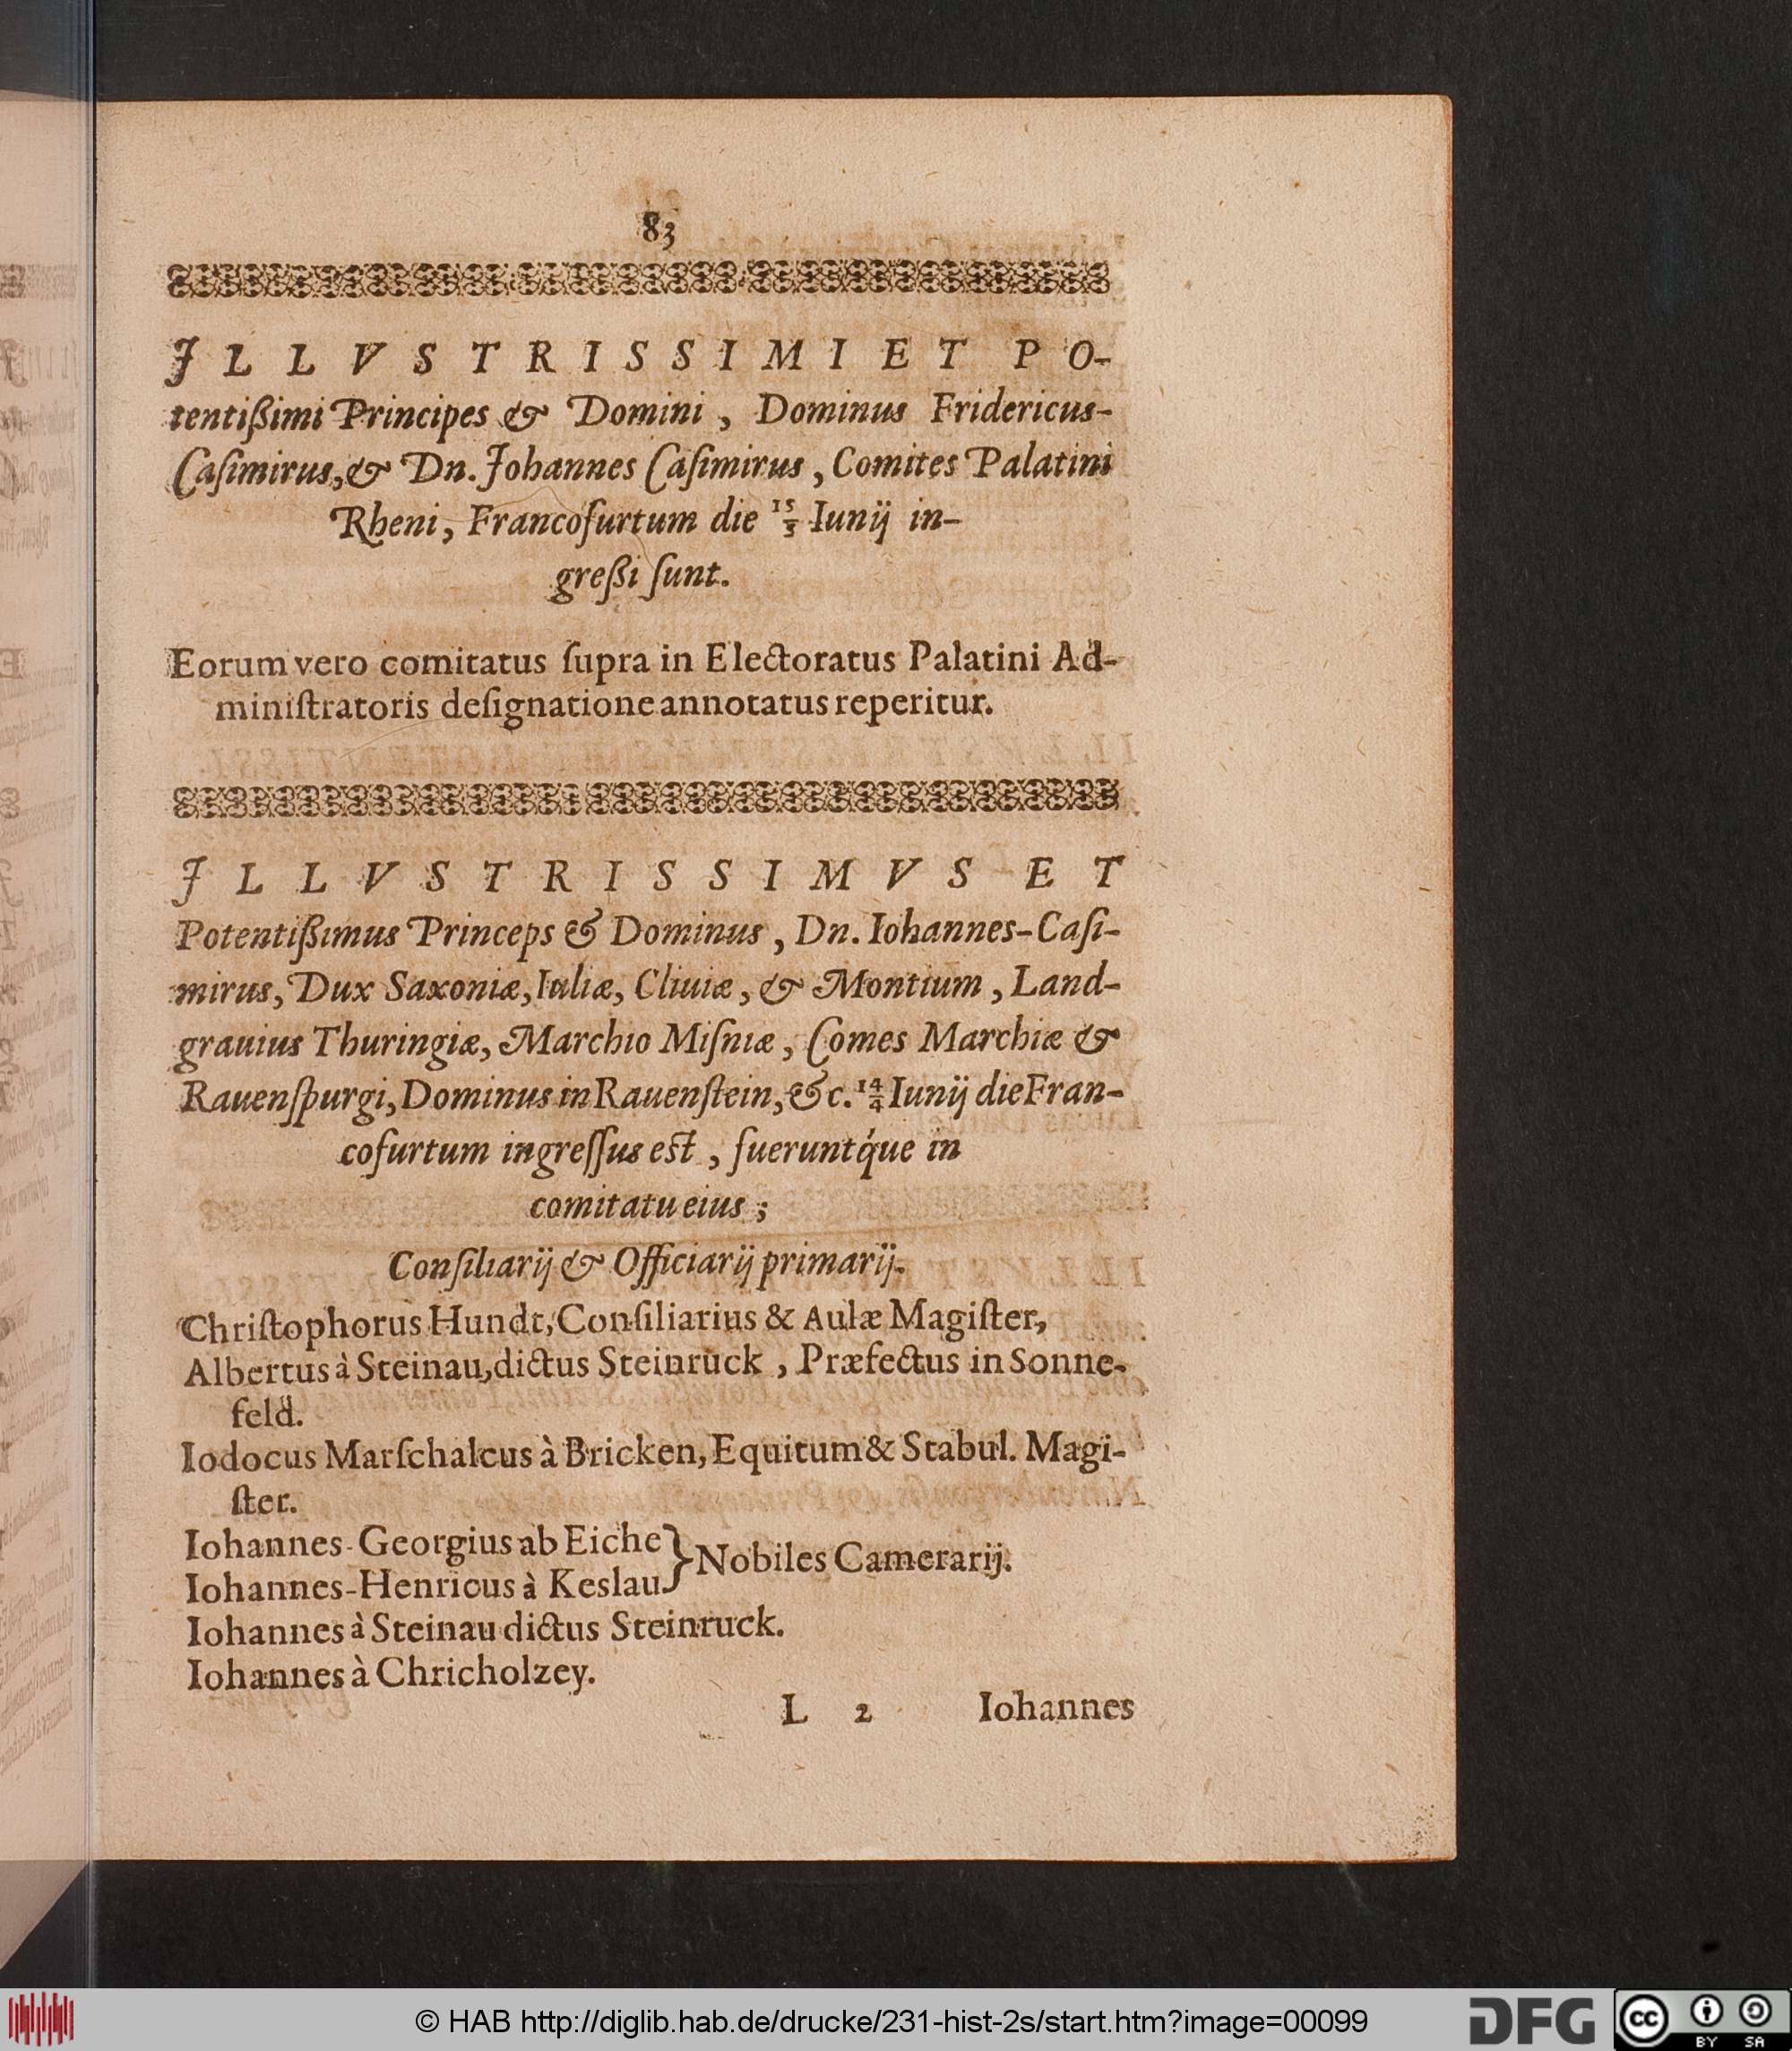 83
JLLVSTRISSIMI ET PO-
tentißimi Principes & Domini, Dominus Fridericus-
Caſimirus, & Dn. Johannes Caſimirus, Comites Palatini
Rheni, Francofurtum die 15/5 Iunij in-
greßi ſunt.
Eorum vero comitatus ſupra in Electoratus Palatini Ad-
miniſtratoris deſignatione annotatus reperitur.
JLLVSTRISSIMVS ET
Potentißimus Princeps & Dominus, Dn. Iohannes-Caſi-
mirus, Dux Saxoniæ, Iuliæ, Cliuiæ, & Montium, Land-
grauius Thuringiæ, Marchio Miſniæ, Comes Marchiæ &
Rauenſpurgi, Dominus in Rauenſtein, &c. 14/4 Iunij die Fran-
cofurtum ingreſſus eſt, fuerunt q́ue in
comitatu eius;
Conſiliarij & Officiarij primarij.
Chriſtophorus Hundt, Conſiliarius & Aulæ Magiſter,
Albertus à Steinau, dictus Steinruck, Præfectus in Sonne-
feld.
Iodocus Marſchalcus à Bricken, Equitum & Stabul. Magi-
ſter.
Iohannes-Georgius ab Eiche } Nobiles Camerarij.
Iohannes-Henricus à Keslau
Iohannes à Steinau dictus Steinruck.
Iohannes à Chricholzey.
L 2 Iohannes
© HAB http://diglib.hab.de/drucke/231-hist-2s/start.htm?image=00099
DFG
cc BY SA